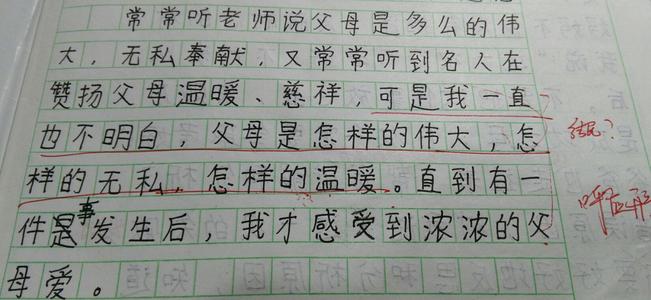 常常听老师说父母是多么的伟
大，无私奉献，又常常听到名人在
赞扬父母温暖、慈祥，可是我一直
也不明白，父母是怎样的伟大，怎
样的无私，怎样的温暖。直到有一
件事发生后，我才感受到浓浓的父
母爱。